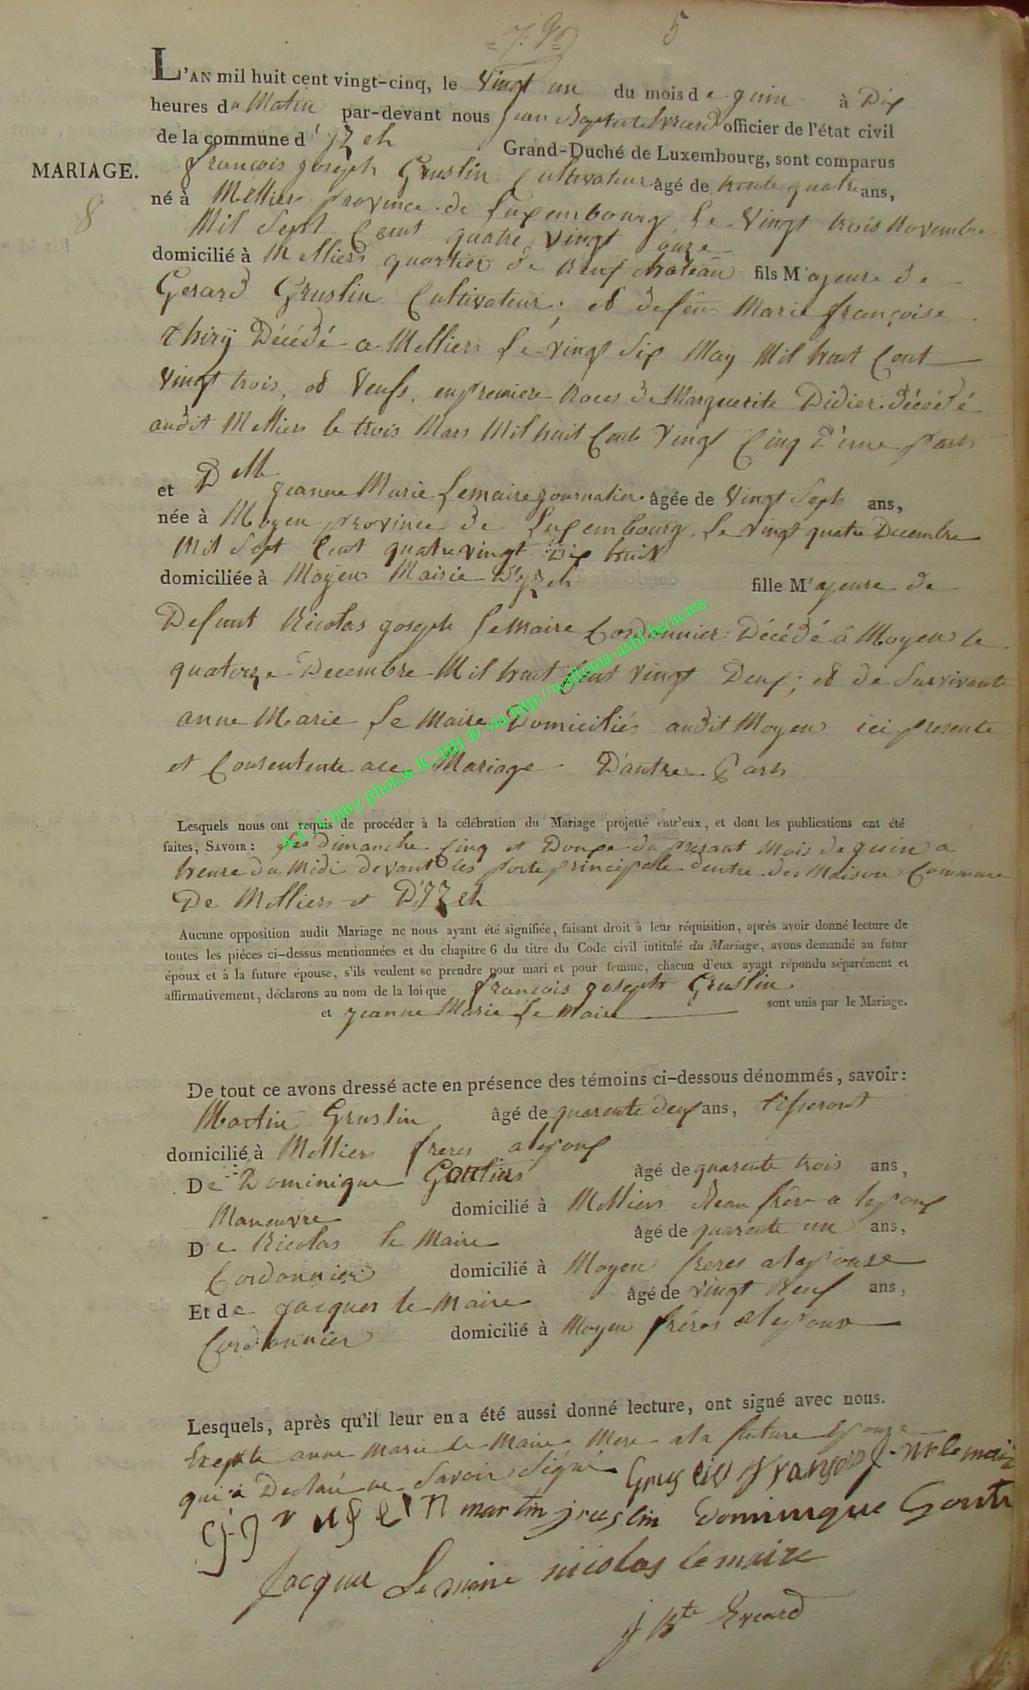 5
L'AN mil huit cent vingt-cinq, le Vingt un du mois de juin à Dix
heures du Matin par-devant nous Jean Baptiste Evrard officier de l'état civil
de la commune d'yzel Grand-Duché de Luxembourg, sont comparus
MARIAGE.
8
françois joseph Gruslin Cultivateur âgé de trente quatre ans,
né à Mellier province de Luxembourg le Vingt trois Novembre
Mil Sept Cent quatre Vingt onze
domicilié à Melliers quartier de Neuf chateau fils Majeure de
Gerard Gruslin Cultivateur, et defeu Marie françoise
thiry Décédé a Melliers le vingt Six May Mil huit Cent
Vingt trois, et Veufs, enpremiere Noces de Marguerite Didier décédé
audit Melliers le trois Mars Mil huit Cent Vingt Cinq D'une part
et Dlle jeanne Marie Lemaire journalier âgée de Vingt Sept ans,
née à Moyen province de Luxembourg le vingt quatre Decembre
Mil Sept Cent quatre vingt Dix huit
domiciliée à Moyen Mairie D'yzel fille Majeure de
Defunt Nicolas joseph Lemaire Cordonnier Décédé a Moyen le
quatorze Decembre Mil huit Cent vingt Deux; et de Survivante
anne Marie Le Maire Domiciliés audit Moyen ici presente
et Consentente ace Mariage D'autre Part
Lesquels nous ont requis de procéder à la célébration du Mariage projetté entr'eux, et dont les publications ont été
faites, SAVOIR: les dimanche Cinq et Douze du present Mois de juin a
heure du Midi devant les porte principalle dentre des Maison Commune
De Melliers et D'yzel
Aucune opposition audit Mariage ne nous ayant été signifiée, faisant droit à leur réquisition, aprés avoir donné lecture de
toutes les pièces ci-dessus mentionnées et du chapitre 6 du titre du Code civil intitulé du Mariage, avons demandé au futur
époux et à la future épouse, s'ils veulent se prendre pour mari et pour femme, chacun d'eux ayant répondu séparément et
affirmativement, déclarons au nom de la loi que françois joseph Gruslin
et jeanne Marie Le Maire sont unis par le Mariage.
De tout ce avons dressé acte en présence des témoins ci-dessous dénommés, savoir:
Martin Gruslin âgé de quarente deux ans, tisseront
domicilié à Melliers freres alepoux
De Dominique âgé de quarente trois ans,
Manœuvre domicilié à Melliers Beau frére a lepoux
De Nicolas le Maire âgé de quarente un ans,
Cordonnier domicilié à Moyen freres alepouse
Et de jacques le Maire âgé de vingt Neuf ans,
Cordonnier domicilié à Moyen fréres alepouse
Lesquels, après qu'il leur en a été aussi donné lecture, ont signé avec nous.
Excepte anne Marie le Maire Mere ala future Epouze
qui a Declaré ne Savoir Signé Gruslin françois lemaire
martin gruslin Dominique
Jacque Le maire nicolas lemaire
j Bte Evrard
A.C. Chiny photos IC/HB © via http://wallonia-asbl.be/actes